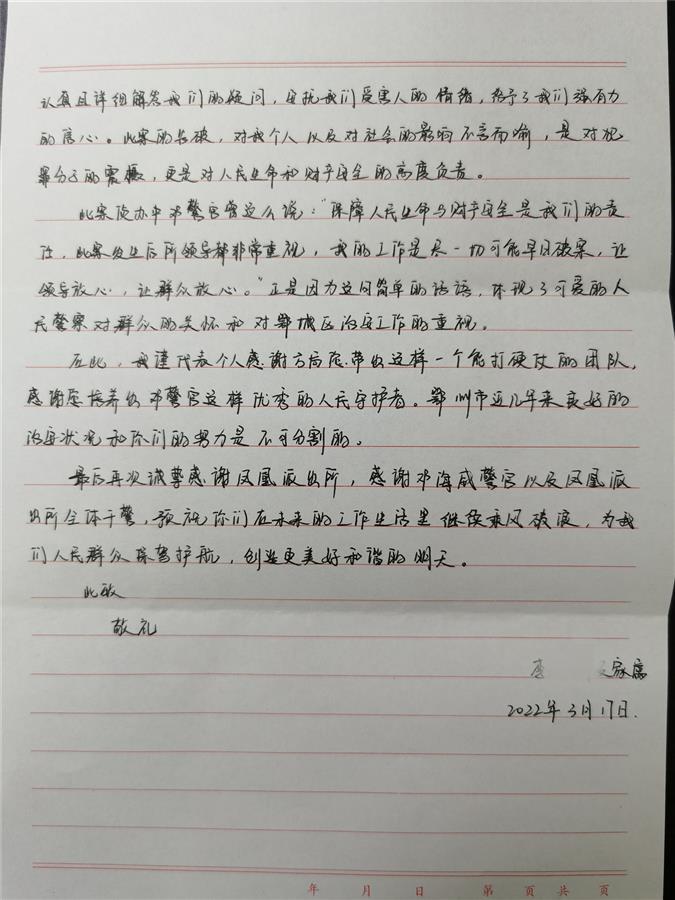 认真且详细解答我们的疑问，安抚我们受害人的情绪，给予了我们强有力
的信心。此案的告破，对我个人以及对社会的影响不言而喻，是对犯
罪分子的震慑，更是对人民生命和财产安全的高度负责。
此案侦办中邓警官曾这么说："保障人民生命与财产安全是我们的责
任，此案发生后所领导都非常重视，我的工作是尽一切可能早日破案，让
领导放心，让群众放心。"正是因为这句简单的话语，体现了可爱的人
民警察对群众的关怀和对鄂城区治安工作的重视。
在此，我谨代表个人感谢方局能带出这样一个能打硬仗的团队，
感谢您培养出邓警官这样优秀的人民守护者。鄂州市近几年来良好的
治安状况和你们的努力是不可分割的。
最后再次诚挚感谢凤凰派出所，感谢邓海威警官以及凤凰派
出所全体干警，预祝你们在未来的工作生活里继续乘风破浪，为我
们人民群众保驾护航，创造更美好和谐的明天。
此致
敬礼
家属
2022年3月17日.
年 月 日 第 页 共 页